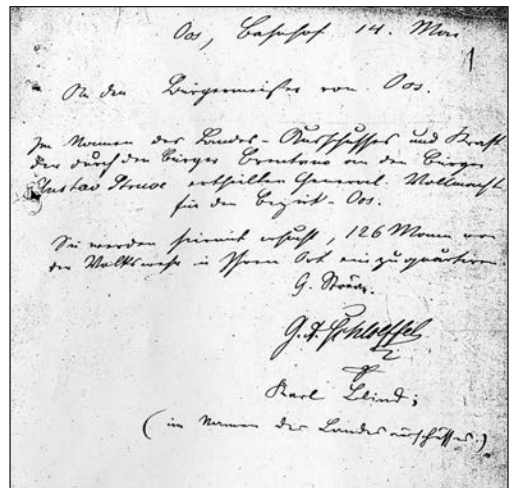 Oos, Bahnhof 14. Mai
1
An den Bürgermeister von Oos.
Im Namen des Landes-Ausschusses und Kraft
der durch den Bürger Brentano an den Bürger
Gustav Struve ertheilten General-Vollmacht
für den Bezirk-Oos.
Sie werden hiermit ersucht, 126 Mann von
der Volkswehr in Ihrem Ort einzuquartieren.
G. Struve.
G. A. Schlöffel
Karl Blind;
(im Namen des Landesausschusses.)